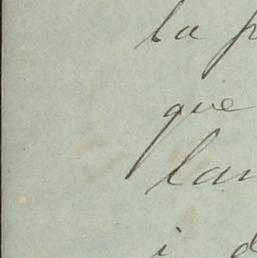 la p
que
lan
i d